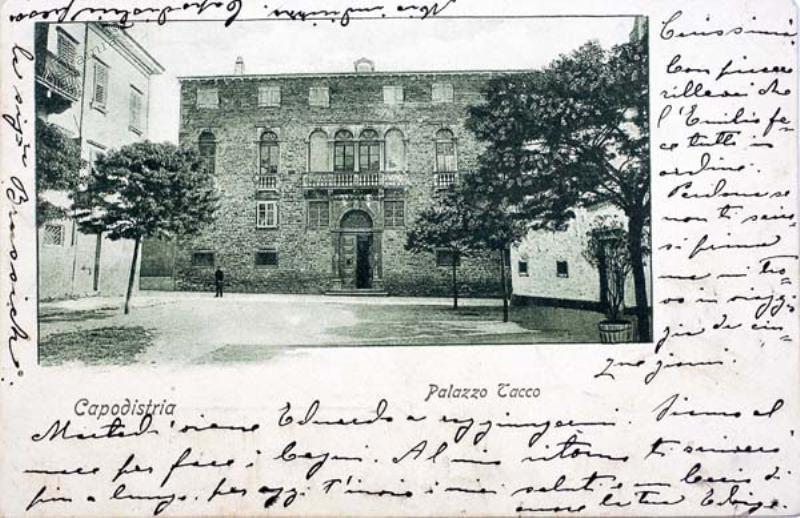 Carissima,
Con piacere
rilevai che
l'Emilio fe-
ce tutti in
ordine.
Perdona se
non ti scris-
si prima
ma mi tro-
vo in viag-
gio da cin-
que giorni.
Capodistria
Palazzo Tacco
Martedì viene Eduardo a raggiungermi. Siamo al
mare per fare i bagni. Al mio ritorno ti scriverò
più a lungo, per oggi t'invio i miei saluti e un bacio di
cuore la tua Edvige.
la sigra